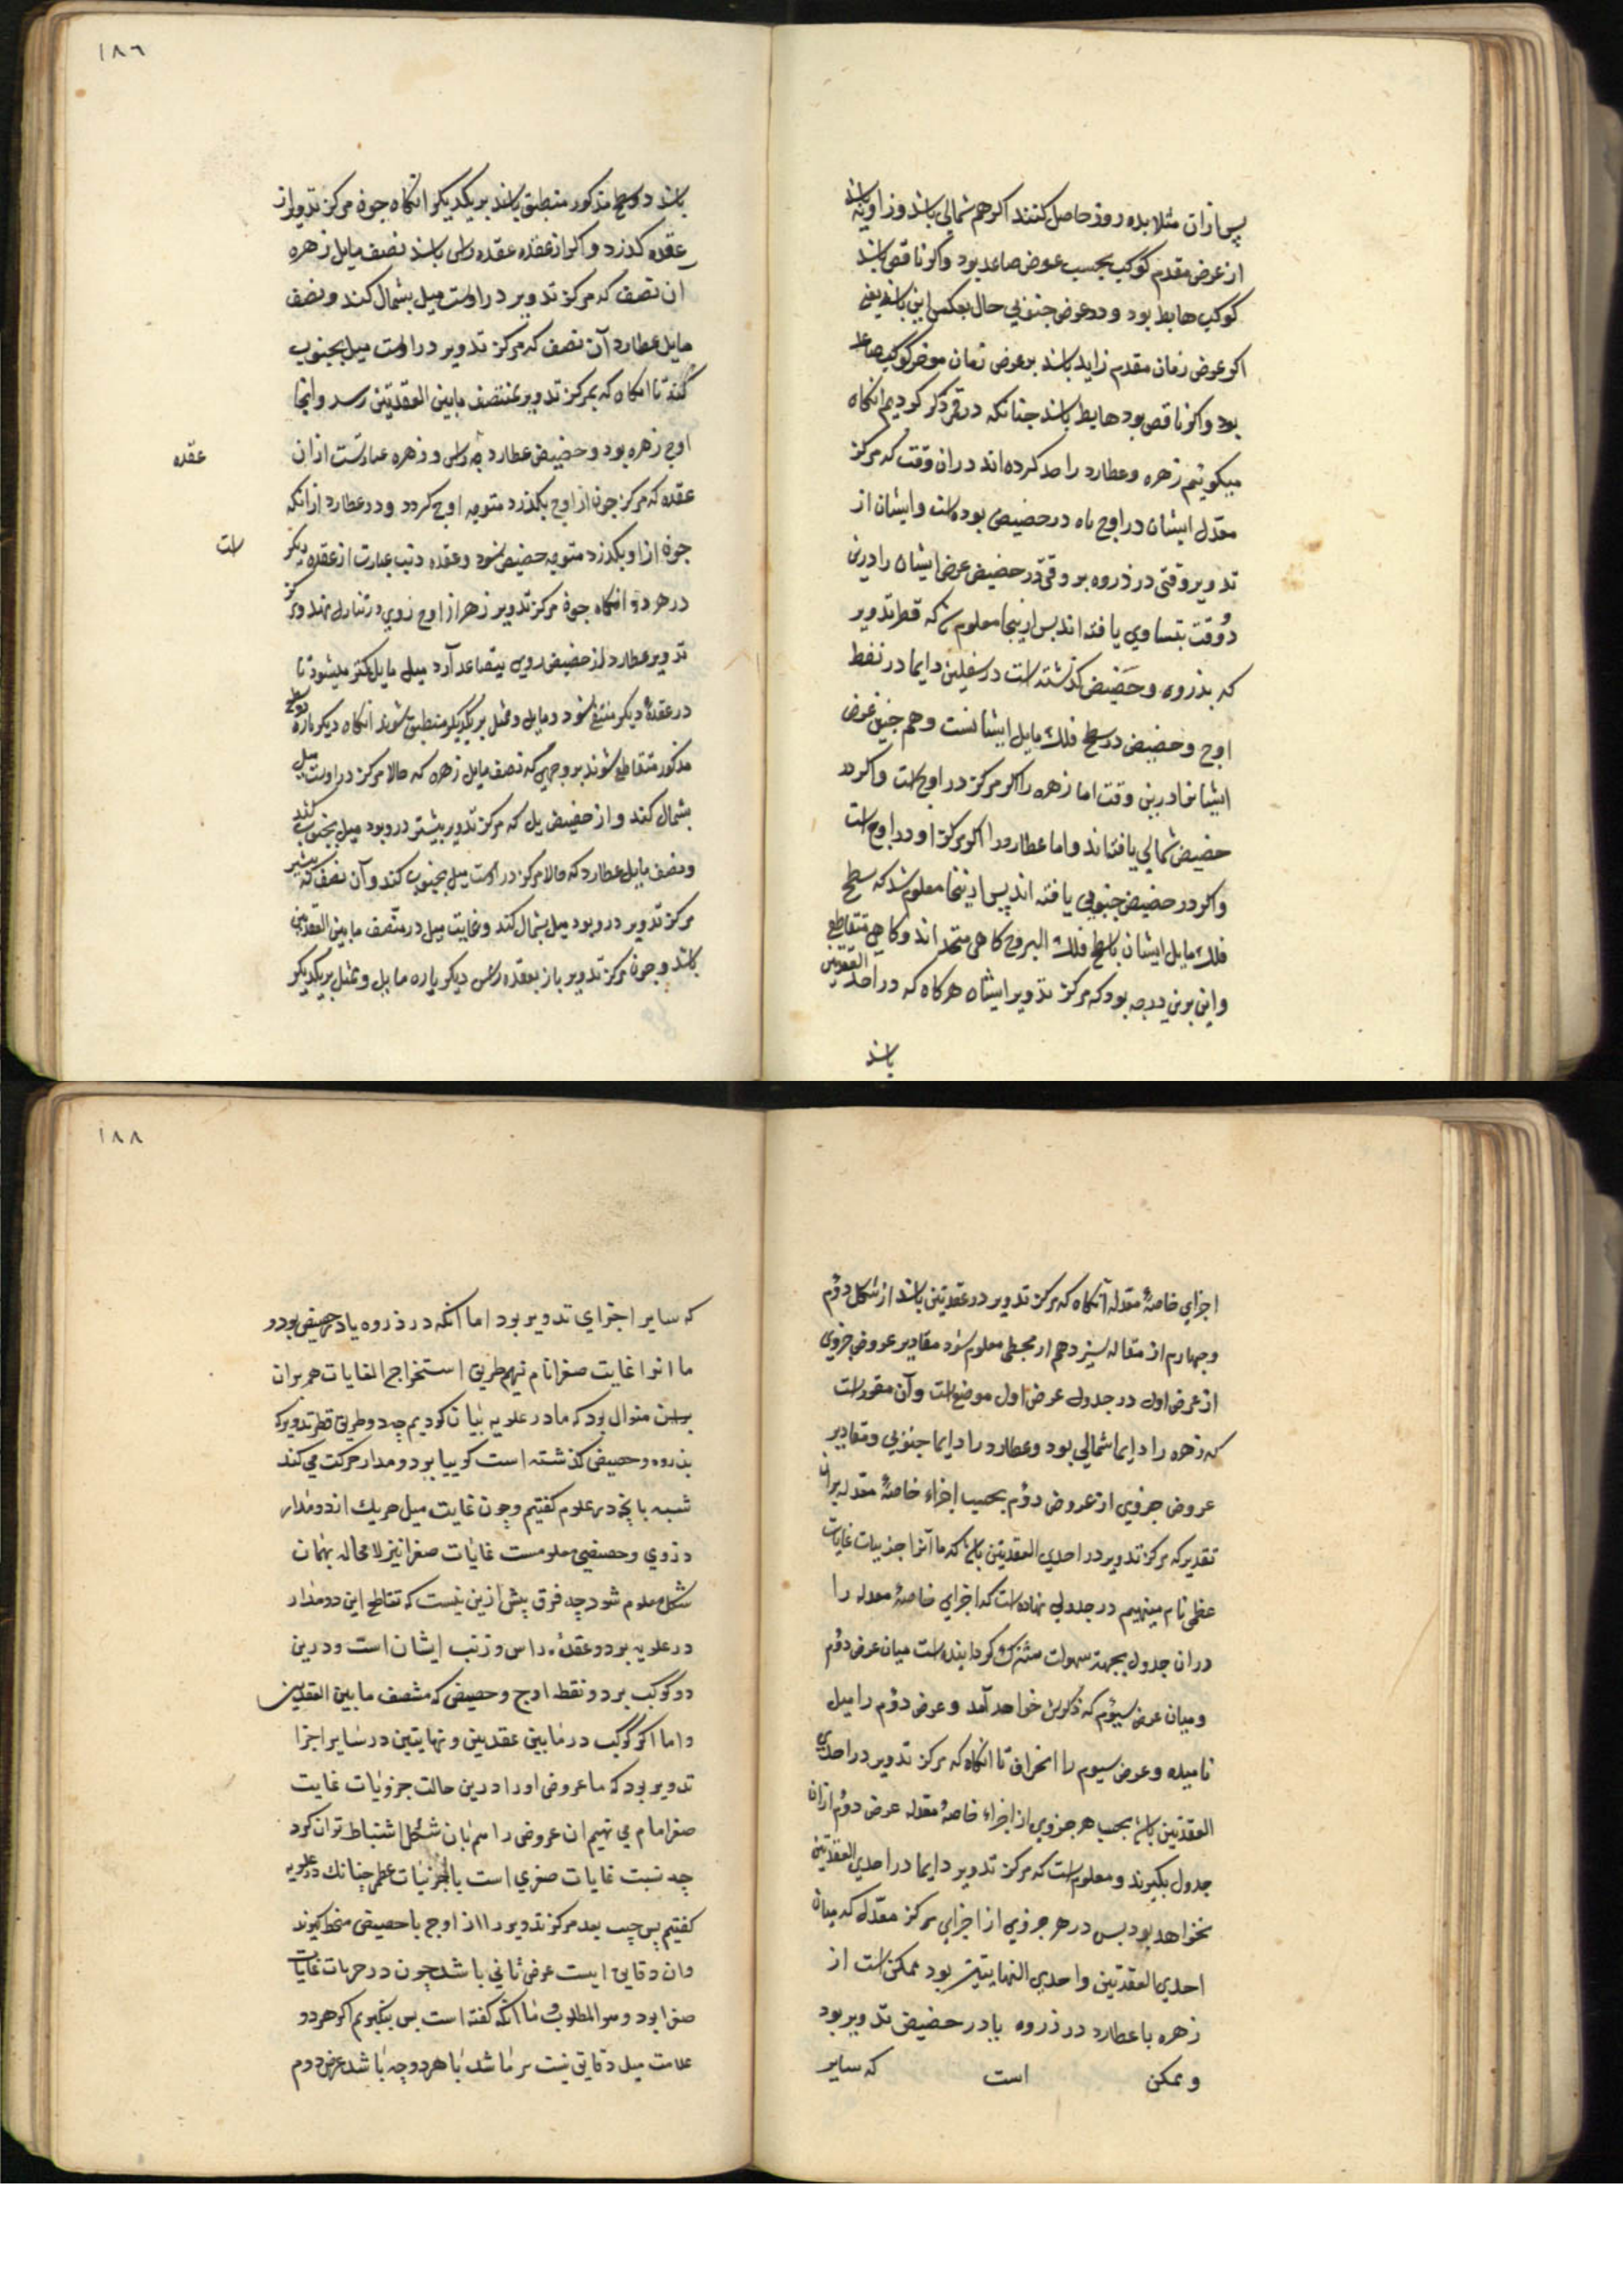 پس ازان مثلا بده روز حاصل کنند اکر هم شمالی باشد و زاویه باشد
از عرض مقدم کوکب بحسب عرض صاعد بود واکر ناقص باشد
کوکب هابط بود ودر عرض جنوبی حال بعکس این باشد یعنی
اکر عرض زمان مقدم زاید باشد بر عرض زمان موخر کوکب صاعد
بود واکر ناقص بود هابط باشد چنانکه در قمر ذکر کردیم انکاه
میکوییم زهره وعطارد را رصد کرده اند دران وقت که مرکز
معدل ایشان در اوج یاه در حضیض بوده است وایشان از
تدویر وقتی در ذروه بر وقتی در حضیض عرض ایشان را درین
دو وقت بتساوی یافته اند بس ازینجا معلوم شد که قطر تدویر
که بذروه وحضیض کذشته است در سفلیین دایما در نقط
اوج وحضیض در سطح فلک مایل ایشانست وهم چنین عرض
ایشانرا درین وقت اما زهره را اکر مرکز در اوج است واکر در
حضیض شمالی یافته اند واما عطارد را اکر مرکز او در اوج است
واکر در حضیض جنوبی یافته اند پس ازینجا معلوم شد که سطح
فلک مایل ایشان باسطح فلک البروج کاهی متحد اند وکاهی متقاطع
واین برین درجه بود که مرکز تدویر ایشان هرکاه که در احد العقدتین
باشد
١٨٦
باشد دو سطح مذکور منطبق باشند بر یکدیکر انکاه چون مرکز تدویر از
عقده کذرد واکر از عقده عقده راس باشد نصف مایل زهره
آن نصف که مرکز تدویر در اوست میل بشمال کند ونصف
مایل عطارد آن نصف که مرکز تدویر در اوست میل بجنوب
کند تا انکاه که بمرکز تدویر بمنتصف مابین العقدتین رسد وانجا
اوج زهره بود وحضیض عطارد چه راس در زهره عبارتست ازان
عقده
عقده که مرکز چون از اوج بکذرد متوجه اوج کردد ودر عطارد ازانکه
چون ازاو بکذرد متوجه حضیض شود وعقده ذنب عبارت از عقده دیکر
است
در هر دو انکاه چون مرکز تدویر زهره از اوج روی در تنازل نهد ومرکز
تدویر عطارد از حضیض روی بتصاعد آرد میل مایل کمتر میشود تا
در عقدهٔ دیکر منتفی شود ومایل وممثل بر یکدیکر منطبق شوند انکاه دیکر باره دو سطح
مذکور متقاطع شوند بر وجهی که نصف مایل زهره که حالا مرکز در اوست میل
بشمال کند واز حضیض یل که مرکز تدویر بیشتر درو بود میل بجنوب کند
ونصف مایل عطارد که حالا مرکز در اوست میل بجنوب کند وآن نصف که بیشتر
مرکز تدویر درو بود میل بشمال کند وغایت میل در منتصف مابین العقدتین
باشد وچون مرکز تدویر باز بعقده راس دیکر باره مایل وممثل بر یکدیکر
اجزای خاصهٔ معدله آنکاه که مرکز تدویر در عقدتین باشد از شکل دوم
وچهارم از مقاله سیزدهم از مجسطی معلوم شود مقادیر عروض جزوی
از عرض اول در جدول عرض اول موضوعست وآن مقررست
که زهره را دایما شمالی بود وعطارد را دایما جنوبی ومقادیر
عروض جزوی از عروض دوم بحسب اجزاء خاصهٔ معدله بران
تقدیر که مرکز تدویر در احدی العقدتین باشد که ما آنرا جزییات غایات
عظمی نام مینهیم در جدولی نهاده است که اجزای خاصهٔ معدله را
دران جدول بجهت سهولت مشترک کردانیده است میان عرض دوم
ومیان عرض سیوم که ذکرش خواهد آمد وعرض دوم را میل
نامیده وعرض سیوم را انحراف تا انکاه که مرکز تدویر در احدی
العقدتین باشد بحسب هر جزوی از اجزاء خاصهٔ معدله عرض دوم ازان
جدول بکیرند ومعلوم است که مرکز تدویر دایما در احدی العقدتین
نخواهد بود بس در هر جزوی از اجزای مرکز معدله که میان
احدی العقدتین واحدی النهایتین بود ممکن است از
زهره یا عطارد در ذروه یا در حضیض تدویر بود
وممکن است که سایر
١٨٨
که سایر اجزای تدویر بود اما آنکه در ذروه یا در حضیض بود و
ما انرا غایت صغرا نام نهیم طریق استخراج الغایات هم بران
برین منوال بود که ما در علویه بیان کردیم چه دو طرف قطر تدویر که
بذروه وحضیض کذشته است کوییا بر دو مدار حرکت می کند
شبیه بانچه در علوم کفتیم وچون غایت میل هر یک از دو مدار
ذروی وحضیضی معلومست غایات صغرا نیز لا محاله بهمان
شکل معلوم شود چه فرق بیش ازین نیست که تقاطع این دو مدار
در علویه بر دو عقدهٔ راس وذنب ایشان است ودرین
دو کوکب بر دو نقطه اوج وحضیض که منتصف مابین العقدتین
واما اکر کوکب در مابین عقدتین ونهایتین در سایر اجزا
تدویر بود که ما عروض اورا درین حالت جزویات غایت
صغرا نام می نهیم ان عروض را هم بان شکل استنباط توان کرد
چه نسبت غایات صغری است با جزئیات عظمی چنانک در علویه
کفتیم پس چیب بعد مرکز تدویر را از اوج یا حضیض منحط کیرند
وان دقایق ایست عرض ثانی باشد چون در جزیات غایات
صغرا بود وهو المطلوب تا آنکه کفته است پس بنکیریم اکر هر دو
علامت میل دقایق نیست باشد یا هر دو چه باشد عرض دوم